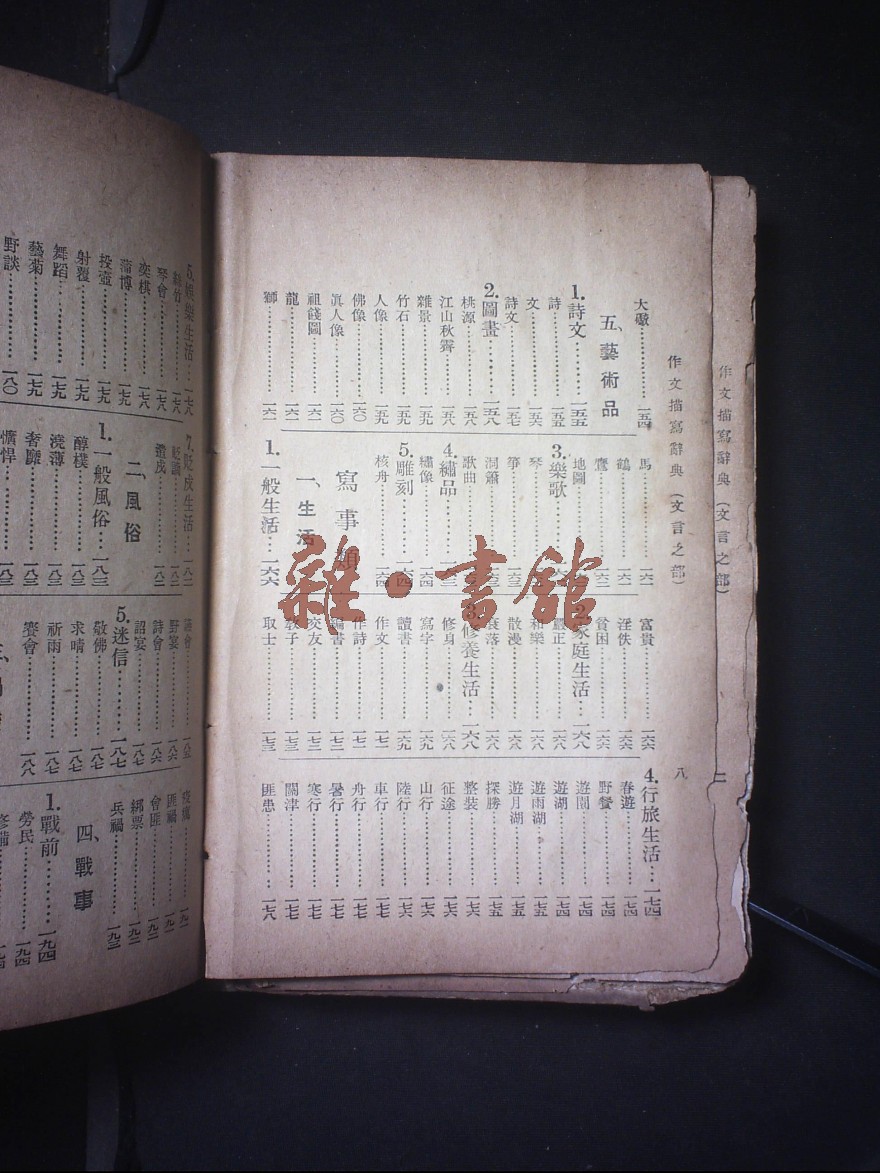 作文描寫辭典（文言之部）
作文描寫辭典（文言之部）
八
大礮⋯⋯一五四
五、藝術品
1.詩文⋯⋯一五五
詩⋯⋯一五五
文⋯⋯一五六
詩文⋯⋯一五七
2.圖畫⋯⋯一五八
桃源⋯⋯一五八
江山秋霽⋯⋯一五八
雜景⋯⋯一五九
竹石⋯⋯一五九
人像⋯⋯一五九
佛像⋯⋯一六〇
眞人像⋯⋯一六〇
祖餞圖⋯⋯一六一
龍⋯⋯一六一
獅⋯⋯一六一
馬⋯⋯一六一
鶴⋯⋯一六一
鷹⋯⋯一六二
地圖
3.樂歌
琴
箏
洞簫
歌曲
4.繡品
繡像⋯⋯一六四
5.雕刻⋯⋯一六四
核舟⋯⋯一六四
寫事類
一、生活
1.一般生活⋯⋯一六六
富貴⋯⋯一六六
貧困⋯⋯一六六
淫佚⋯⋯一六六
2.家庭生活⋯⋯一六八
嚴正⋯⋯一六八
和樂⋯⋯一六八
散漫⋯⋯一六八
衰落⋯⋯一六八
3.修養生活⋯⋯一六八
修身⋯⋯一六八
寫字⋯⋯一六九
讀書⋯⋯一六九
作文⋯⋯一七一
作詩⋯⋯一七二
編書⋯⋯一七二
交友⋯⋯一七三
教子⋯⋯一七三
取士⋯⋯一七三
4.行旅生活⋯⋯一七四
春遊⋯⋯一七四
野餐⋯⋯一七四
遊園⋯⋯一七四
遊湖⋯⋯一七四
遊雨湖⋯⋯一七五
遊月湖⋯⋯一七五
探勝⋯⋯一七五
整裝⋯⋯一七六
征途⋯⋯一七六
山行⋯⋯一七六
陸行⋯⋯一七六
車行⋯⋯一七七
舟行⋯⋯一七七
暑行⋯⋯一七七
寒行⋯⋯一七七
關津⋯⋯一七七
匪患⋯⋯一七八
5.娛樂生活⋯⋯一七八
絲竹⋯⋯一七八
琴會⋯⋯一七八
奕棋⋯⋯一七八
蒲博⋯⋯一七九
投壺⋯⋯一七九
射覆⋯⋯一七九
舞蹈⋯⋯一七九
藝菊⋯⋯一七九
野談⋯⋯一八〇
7.貶戍生活⋯⋯一八二
貶謫⋯⋯一八二
遣戍⋯⋯一八二
二、風俗
1.一般風俗⋯⋯一八三
醇樸⋯⋯一八三
澆薄⋯⋯一八三
奢靡⋯⋯一八三
獷悍⋯⋯一八三
野宴
詩會⋯⋯一八六
詔宴⋯⋯一八七
5.迷信⋯⋯一八七
敬佛⋯⋯一八七
求晴⋯⋯一八七
祈雨⋯⋯一八七
賽會⋯⋯一八八
匪禍
會匪⋯⋯一九二
綁票⋯⋯一九二
兵禍⋯⋯一九三
四、戰事
1.戰前⋯⋯一九四
勞民⋯⋯一九四
修備⋯⋯一九四
雜·書館